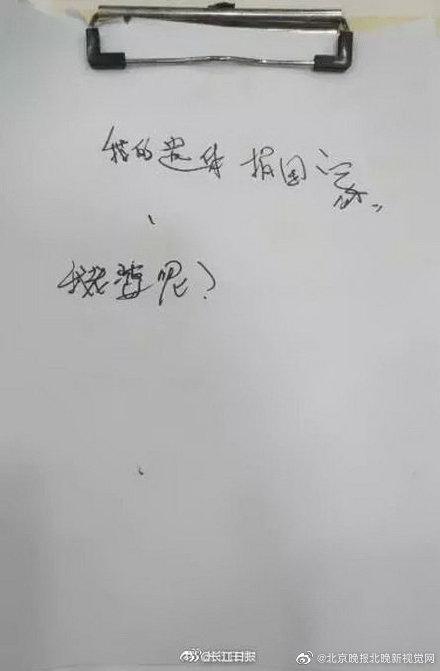 我的遗体捐国家
我老婆呢？
@长江日报
@北京晚报北晚新视觉网